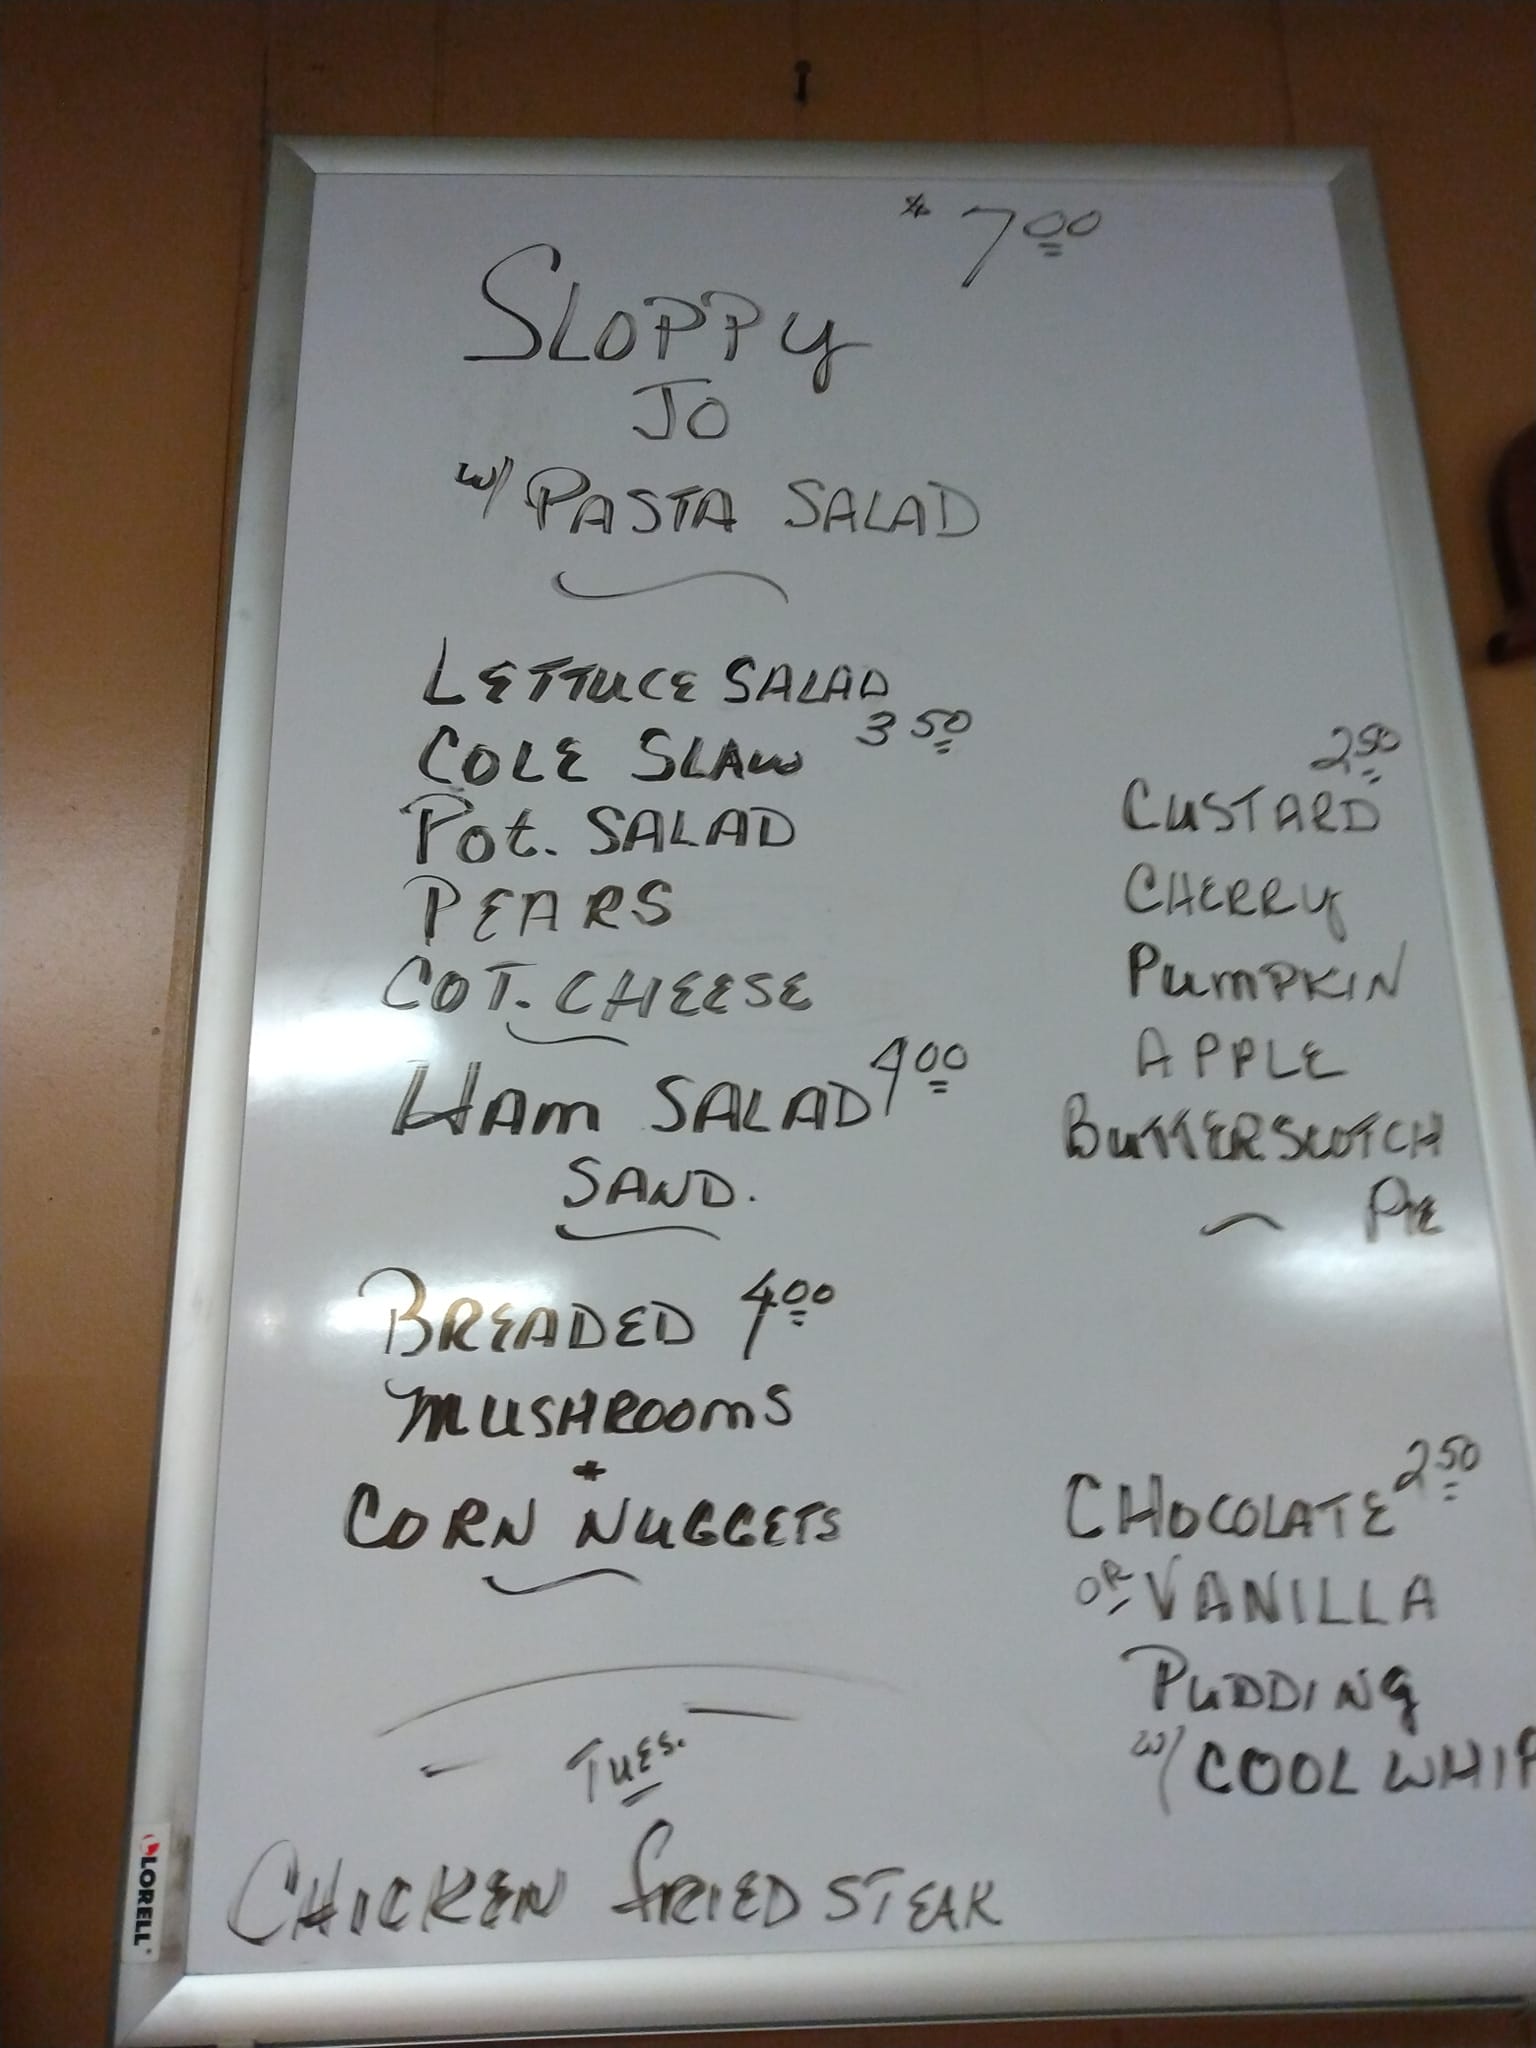 $7.00
SLOPPY
JO
w/ PASTA SALAD
LETTUCE SALAD
COLE SLAW 3.50
POT. SALAD
PEARS
COT. CHEESE
HAM SALAD 4.00
SAND.
BREADED 4.00
MUSHROOMS
+
CORN NUGGETS
TUES.
CHICKEN FRIED STEAK
2.50
CUSTARD
CHERRY
PUMPKIN
APPLE
BUTTERSCOTCH
PIE
CHOCOLATE 2.50
OR VANILLA
PUDDING
w/ COOL WHIP
LORELL